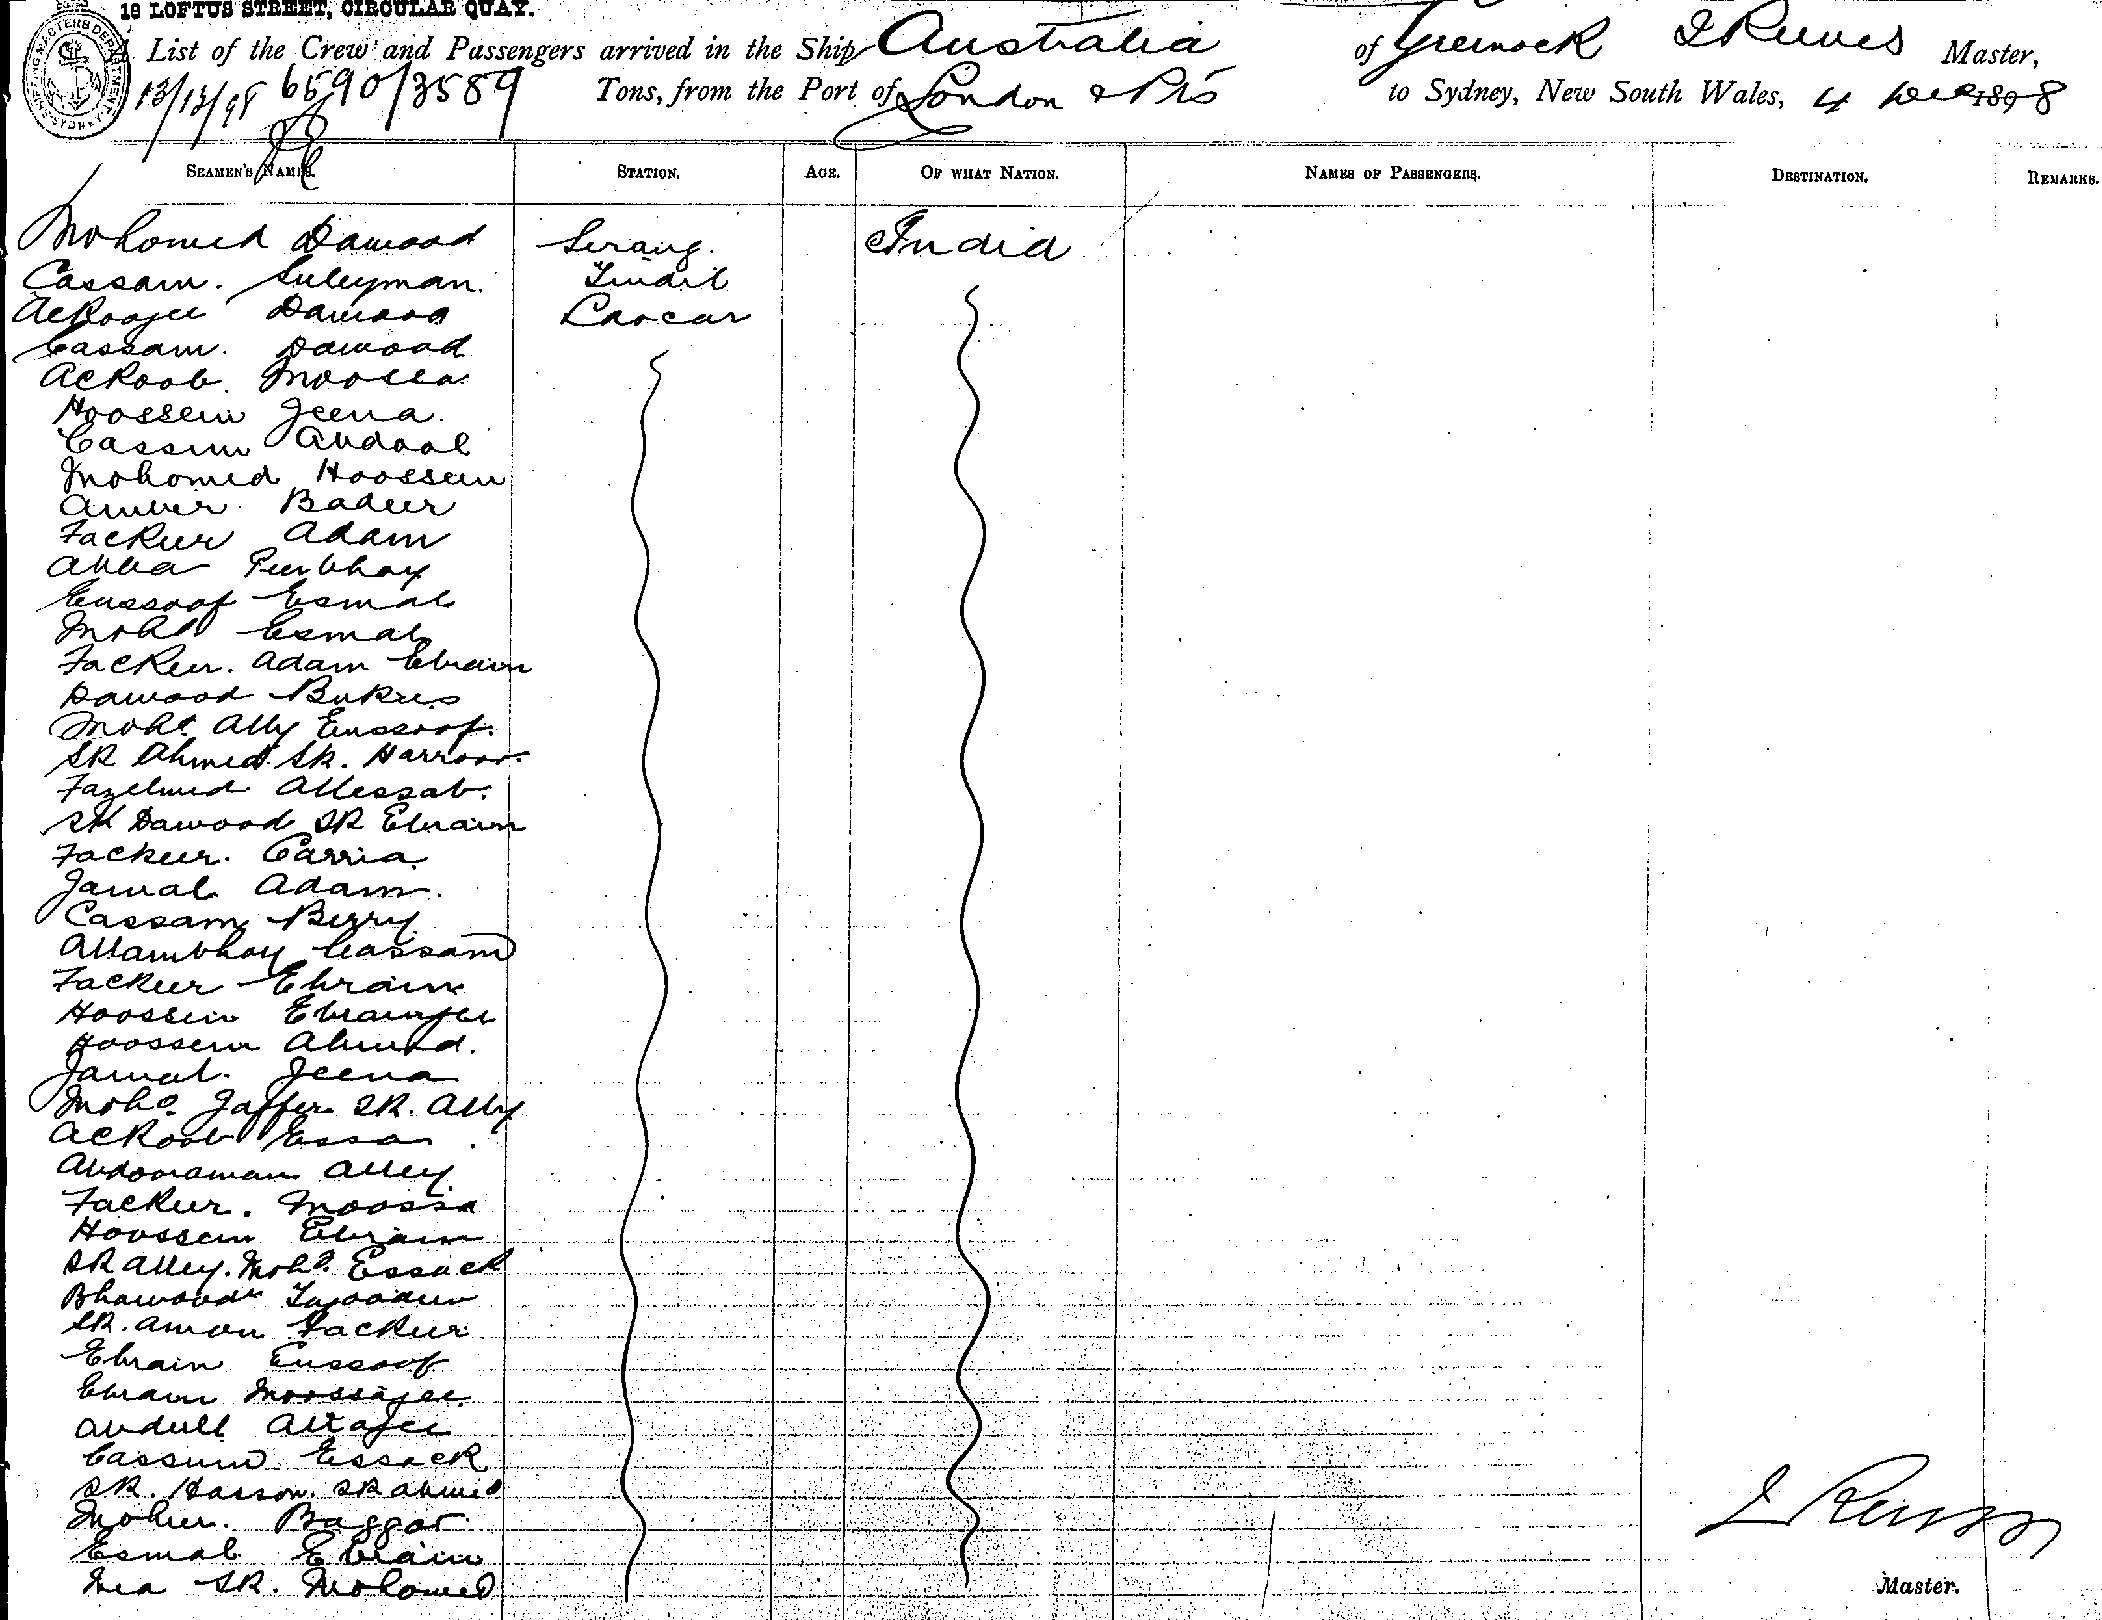 18 LOFTUS STREET, CIRCULAR QUAY.
A List of the Crew and Passengers arrived in the Ship Australia of Greenock I Reeves Master,
13/12/98 6590/3589 Tons, from the Port of London & Pts to Sydney, New South Wales, 4 Dec 1898
SEAMEN'S NAMES. STATION. AGE. OF WHAT NATION. NAMES OF PASSENGERS. DESTINATION. REMARKS.
Mohomed Dawood Serang. India
Cassam. Suleyman. Tindil
Ackoojee Dawood Lascar
Cassam. Dawood
Ackoob. Moosa
Hoossein Jeena.
Cassim Abdool
Mohomed Hoossein
Ameer. Badeer
Fackeer Adam
Abba Peerbhoy
Eussoof Esmal
Mohd Esmal
Fackeer. Adam Ebraim
Dawood
Mohd Ally Eussoof.
SK Ahmed. SK. Harroon.
Fazelmed Allessab.
SK Dawood SK Ebraim
Fackeer. Carria.
Jamal Adam.
Cassam Berry
Allambhoy Cassam
Fackeer Ebraim
Hoossein Ebramjee
Hoossein Ahmed.
Jamal. Jeena
Mohd Jaffer SK. Ally
Ackoob Essa
Abdoraman Alley.
Fackeer. Moossa
Hoossein Ebraim
SK Alley. Mohd. Essack
SK. Amon Fackeer
Ebraim Eussoof
Ebraim Moossajee.
Abdull
Cassum Essack
SK. Hasson. SK Ahmed
Moheer. Baggar
Esmal Ebraim I Reeves
Mia SK. Mohomed Master.